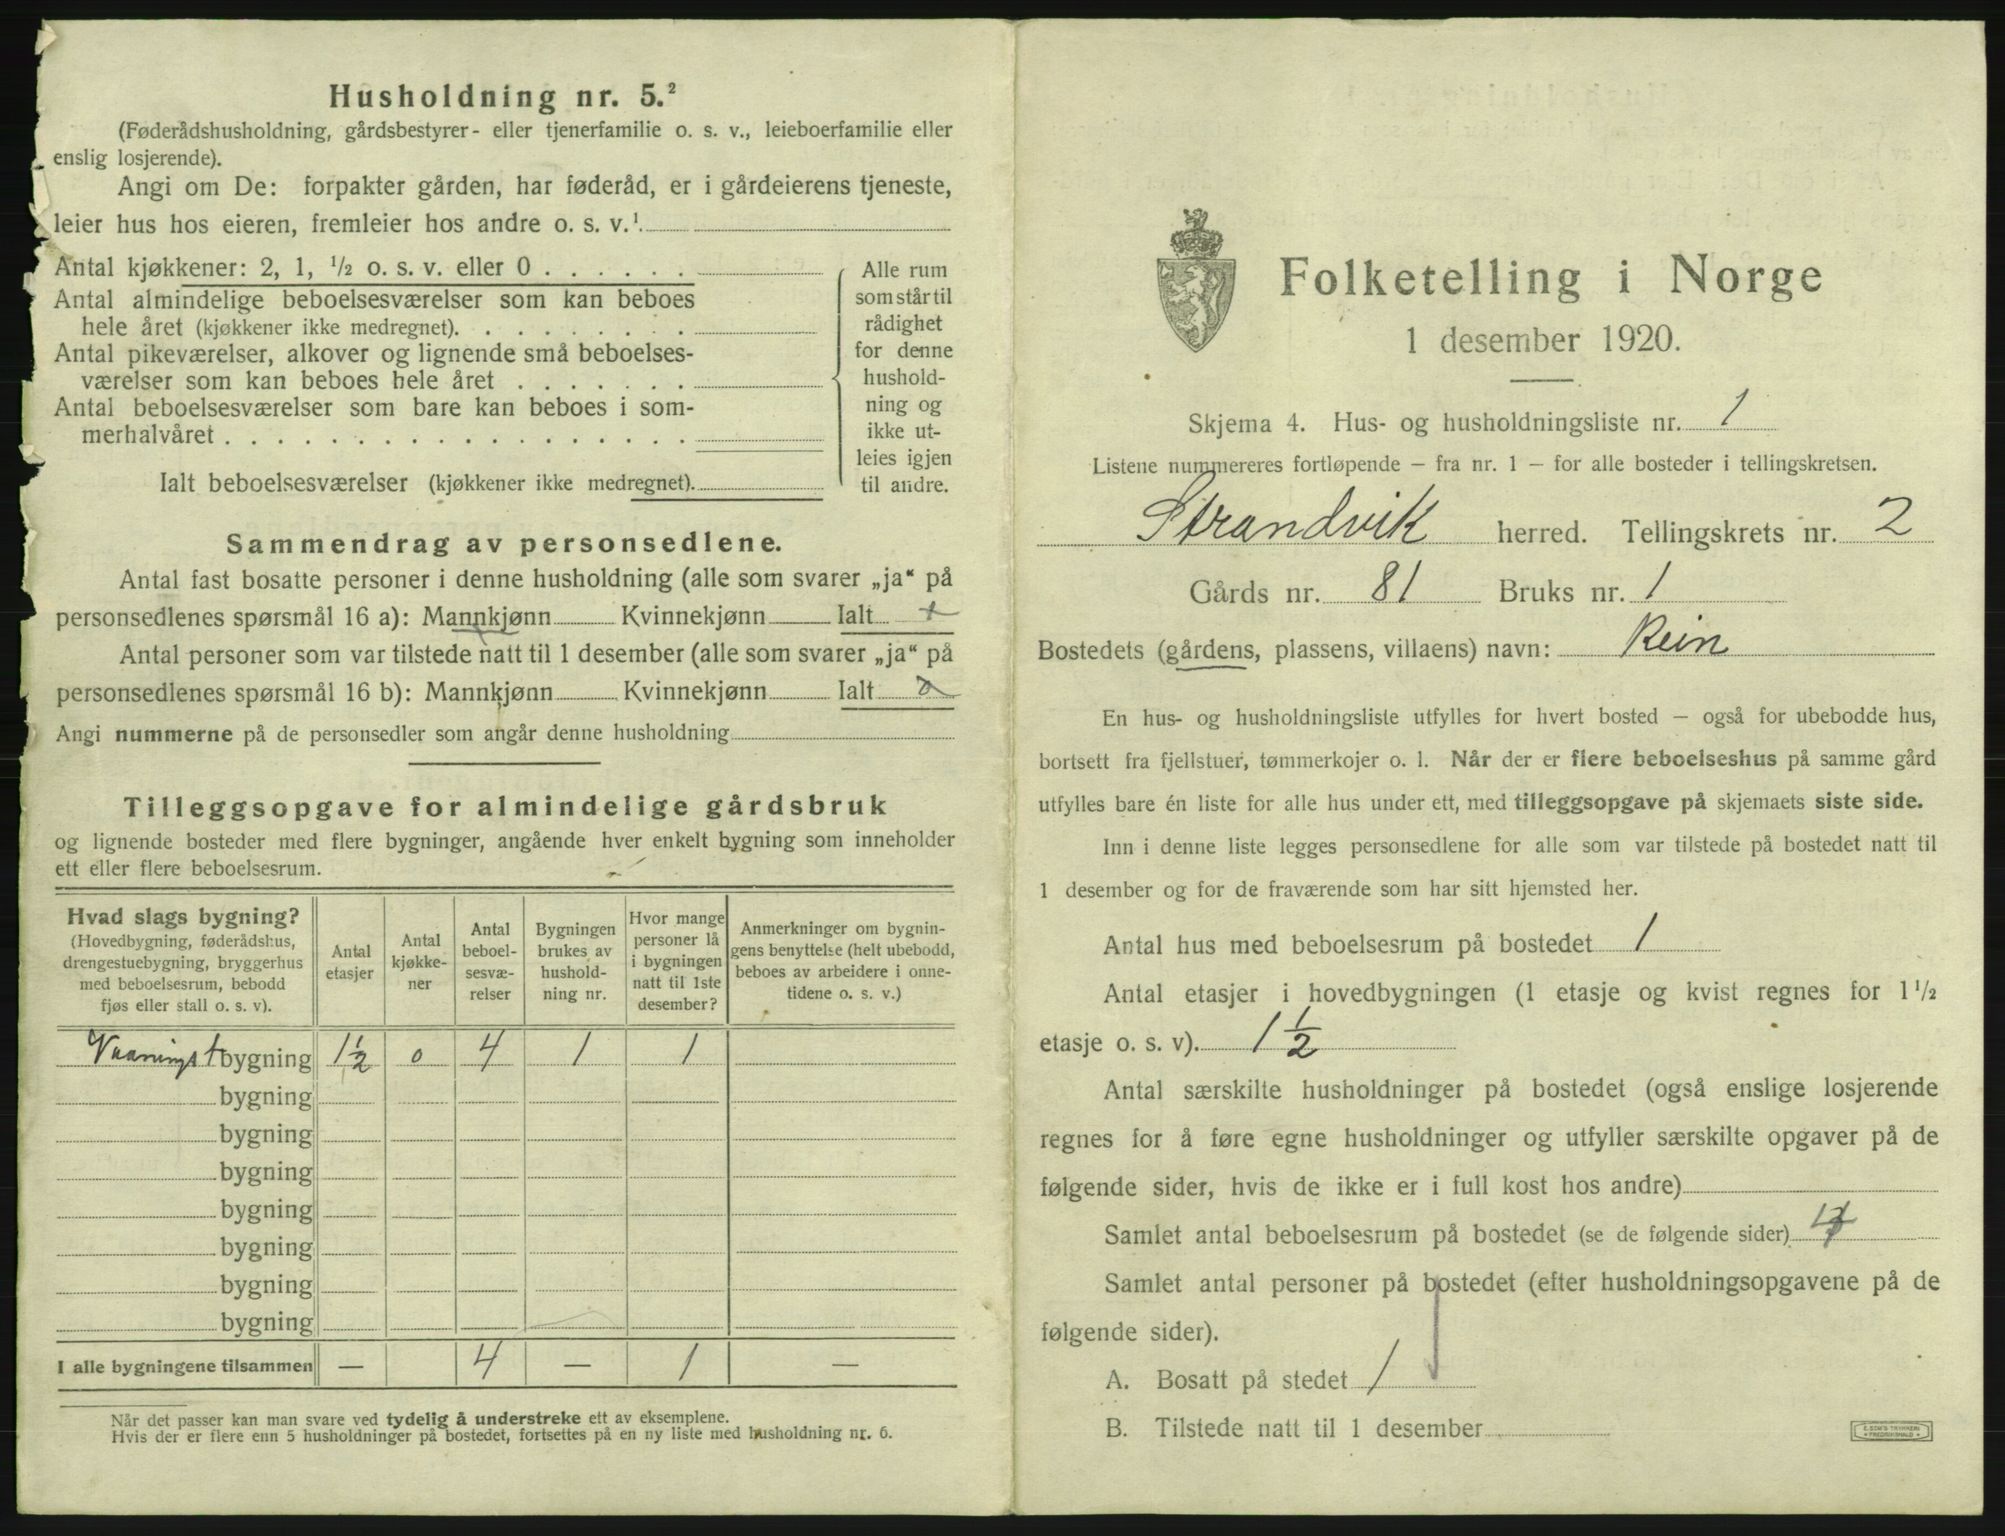 Husholdning nr. 5.²
(Føderådshusholdning, gårdsbestyrer- eller tjenerfamilie o. s. v., leieboerfamilie eller
enslig losjerende).
Angi om De: forpakter gården, har føderåd, er i gårdeierens tjeneste,
leier hus hos eieren, fremleier hos andre o. s. v.¹
Antal kjøkkener: 2, 1, ½ o. s. v. eller 0
Antal almindelige beboelsesværelser som kan beboes
hele året (kjøkkener ikke medregnet).
Antal pikeværelser, alkover og lignende små beboelses-
værelser som kan beboes hele året
Antal beboelsesværelser som bare kan beboes i som-
merhalvåret
Ialt beboelsesværelser (kjøkkener ikke medregnet).
Alle rum
som står til
rådighet
for denne
hushold-
ning og
ikke ut-
leies igjen
til andre.
Sammendrag av personsedlene.
Antal fast bosatte personer i denne husholdning (alle som svarer „ja“ på
personsedlenes spørsmål 16 a): Mannkjønn Kvinnekjønn Ialt
Antal personer som var tilstede natt til 1 desember (alle som svarer „ja“ på
personsedlenes spørsmål 16 b): Mannkjønn Kvinnekjønn Ialt
Angi nummerne på de personsedler som angår denne husholdning
Tilleggsopgave for almindelige gårdsbruk
og lignende bosteder med flere bygninger, angående hver enkelt bygning som inneholder
ett eller flere beboelsesrum.
Hvad slags bygning?
(Hovedbygning, føderådshus,
drengestuebygning, bryggerhus
med beboelsesrum, bebodd
fjøs eller stall o. s. v).
Antal
etasjer
Antal
kjøkke-
ner
Antal
beboel-
sesvæ-
relser
Bygningen
brukes av
hushold-
ning nr.
Hvor mange
personer lå
i bygningen
natt til 1ste
desember?
Anmerkninger om bygnin-
gens benyttelse (helt ubebodd,
beboes av arbeidere i onne-
tidene o. s. v.)
bygning 1½ 0 4 1 1
bygning
bygning
bygning
bygning
bygning
bygning
bygning
I alle bygningene tilsammen — 4 — 1 —
Når det passer kan man svare ved tydelig å understreke ett av eksemplene.
Hvis der er flere enn 5 husholdninger på bostedet, fortsettes på en ny liste med husholdning nr. 6.
Folketelling i Norge
1 desember 1920.
Skjema 4. Hus- og husholdningsliste nr. 1
Listene nummereres fortløpende – fra nr. 1 – for alle bosteder i tellingskretsen.
Strandvik herred. Tellingskrets nr. 2
Gårds nr. 81 Bruks nr. 1
Bostedets (gårdens, plassens, villaens) navn: Rein
En hus- og husholdningsliste utfylles for hvert bosted – også for ubebodde hus,
bortsett fra fjellstuer, tømmerkojer o. l. Når der er flere beboelseshus på samme gård
utfylles bare én liste for alle hus under ett, med tilleggsopgave på skjemaets siste side.
Inn i denne liste legges personsedlene for alle som var tilstede på bostedet natt til
1 desember og for de fraværende som har sitt hjemsted her.
Antal hus med beboelsesrum på bostedet 1
Antal etasjer i hovedbygningen (1 etasje og kvist regnes for 1½
etasje o. s. v). 1½
Antal særskilte husholdninger på bostedet (også enslige losjerende
regnes for å føre egne husholdninger og utfyller særskilte opgaver på de
følgende sider, hvis de ikke er i full kost hos andre)
Samlet antal beboelsesrum på bostedet (se de følgende sider)
Samlet antal personer på bostedet (efter husholdningsopgavene på de
følgende sider).
A. Bosatt på stedet 1
B. Tilstede natt til 1 desember